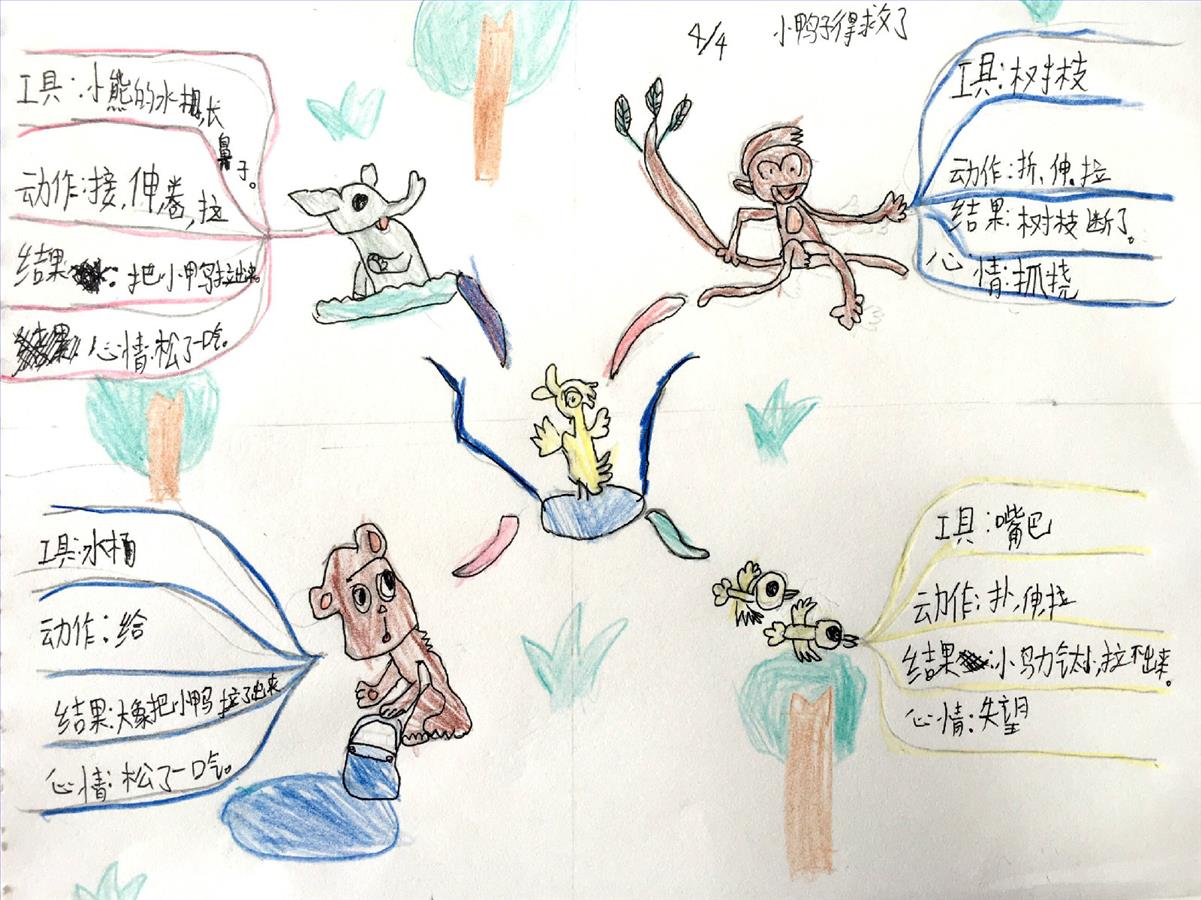 4/4 小鸭子得救了
工具:小熊的水桶,长
鼻子。
动作:接,伸卷,拉
结果:把小鸭子拉出来
心情:松了一口气。
工具:树枝
动作:折,伸,拉
结果:树枝断了。
心情:抓挠
工具:水桶
动作:给
结果:大象把小鸭拉了出来
心情:松了一口气。
工具:嘴巴
动作:扑,伸,拉
结果:小鸟力太小,拉不出来。
心情:失望